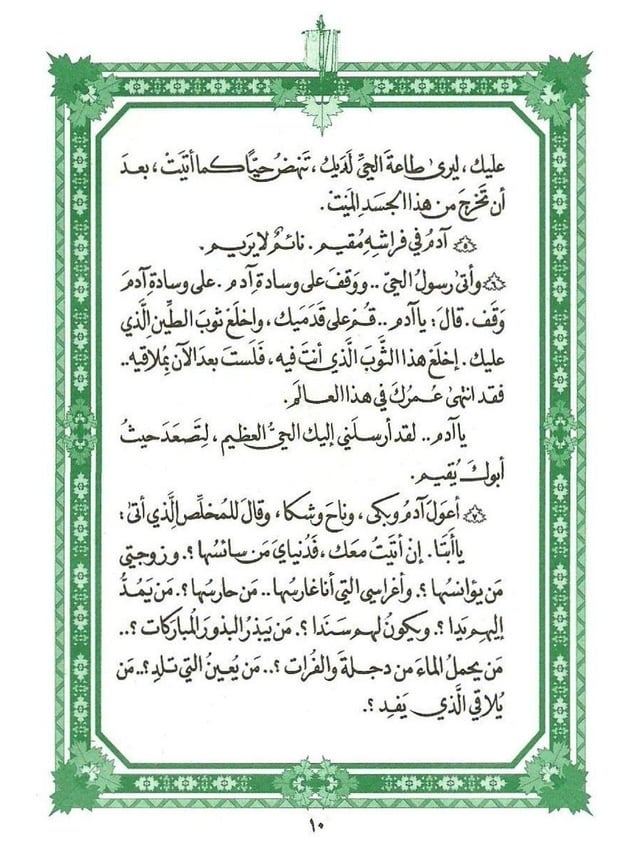 عليك ، ليرى طاعةَ الحيِّ لديك ، تنهضُ حيّاً كما أتيتْ ، بعدَ
أن تخرجَ من هذا الجسد الميتْ.
٥ آدمُ في فراشِهِ مُقيم . نائمٌ لا يريم .
٦ وأتى رسولُ الحيّ .. ووقفَ على وسادةِ آدم . على وسادة آدمَ
وَقف . قالَ : يا آدم .. قُم على قدَميك ، واخلَع ثوبَ الطِّين الَّذي
عليك . إخلَع هذا الثَّوبَ الَّذي أنتَ فيه ، فَلستَ بعدَ الآن بمُلاقيه ..
فقد انتهى عُمرُكَ في هذا العالم .
يا آدم .. لقد أرسلَني إليك الحيُّ العظيم ، لِتَصعَدَ حيثُ
أبوكَ يُقيم .
٧ أعوَلَ آدمُ وبكى ، وناحَ وشكا ، وقالَ للمُخلِّصِ الَّذي أتى :
يا أبَتا . إن أتَيتُ معَك ، فَدُنيايَ مَن سائسُها ؟. وزوجتي
مَن يؤانسُها ؟. وأغراسي التي أنا غارسُها .. مَن حارسُها ؟. مَن يَمُدُّ
إليهم يَدا ؟. ويكونُ لهم سَنَدا ؟. مَن يَبذرُ البذورَ المُباركات ؟..
مَن يحملُ الماءَ من دجلةَ والفُرات ؟.. مَن يُعينُ التي تلد ؟.. مَن
يُلاقي الَّذي يَفِد ؟.
١٠